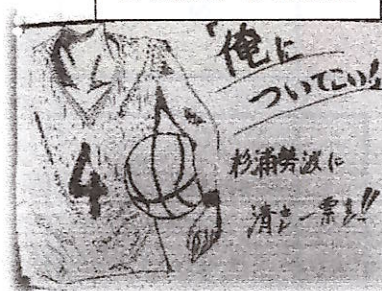 「俺に
ついてこい!
杉浦勢波に
清き一票を!!
4